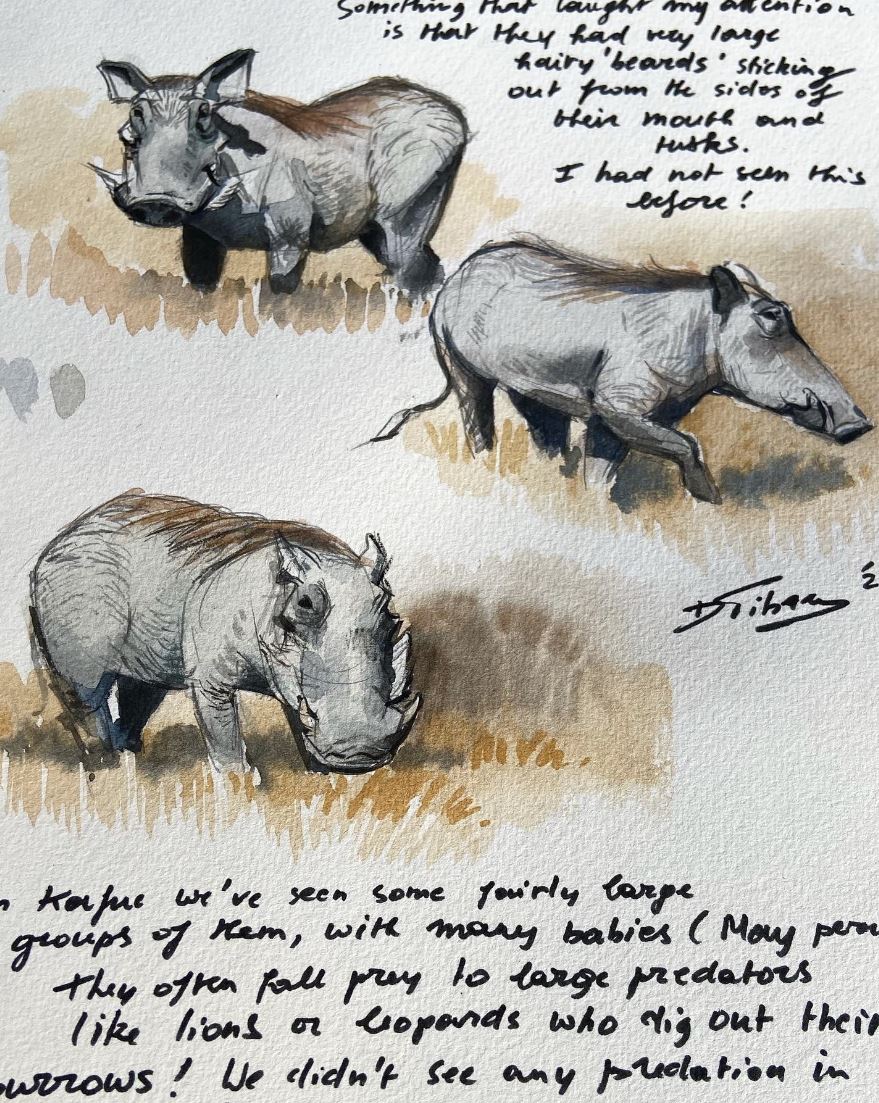 Something that caught my attention
is that they had very large
hairy 'beards' sticking
out from the sides of
their mouth and
tusks.
I had not seen this
before!
Kafue we've seen some fairly large
groups of them, with many babies ( May
they often fall prey to large predators
like lions or leopards who dig out their
! We didn't see any predation in